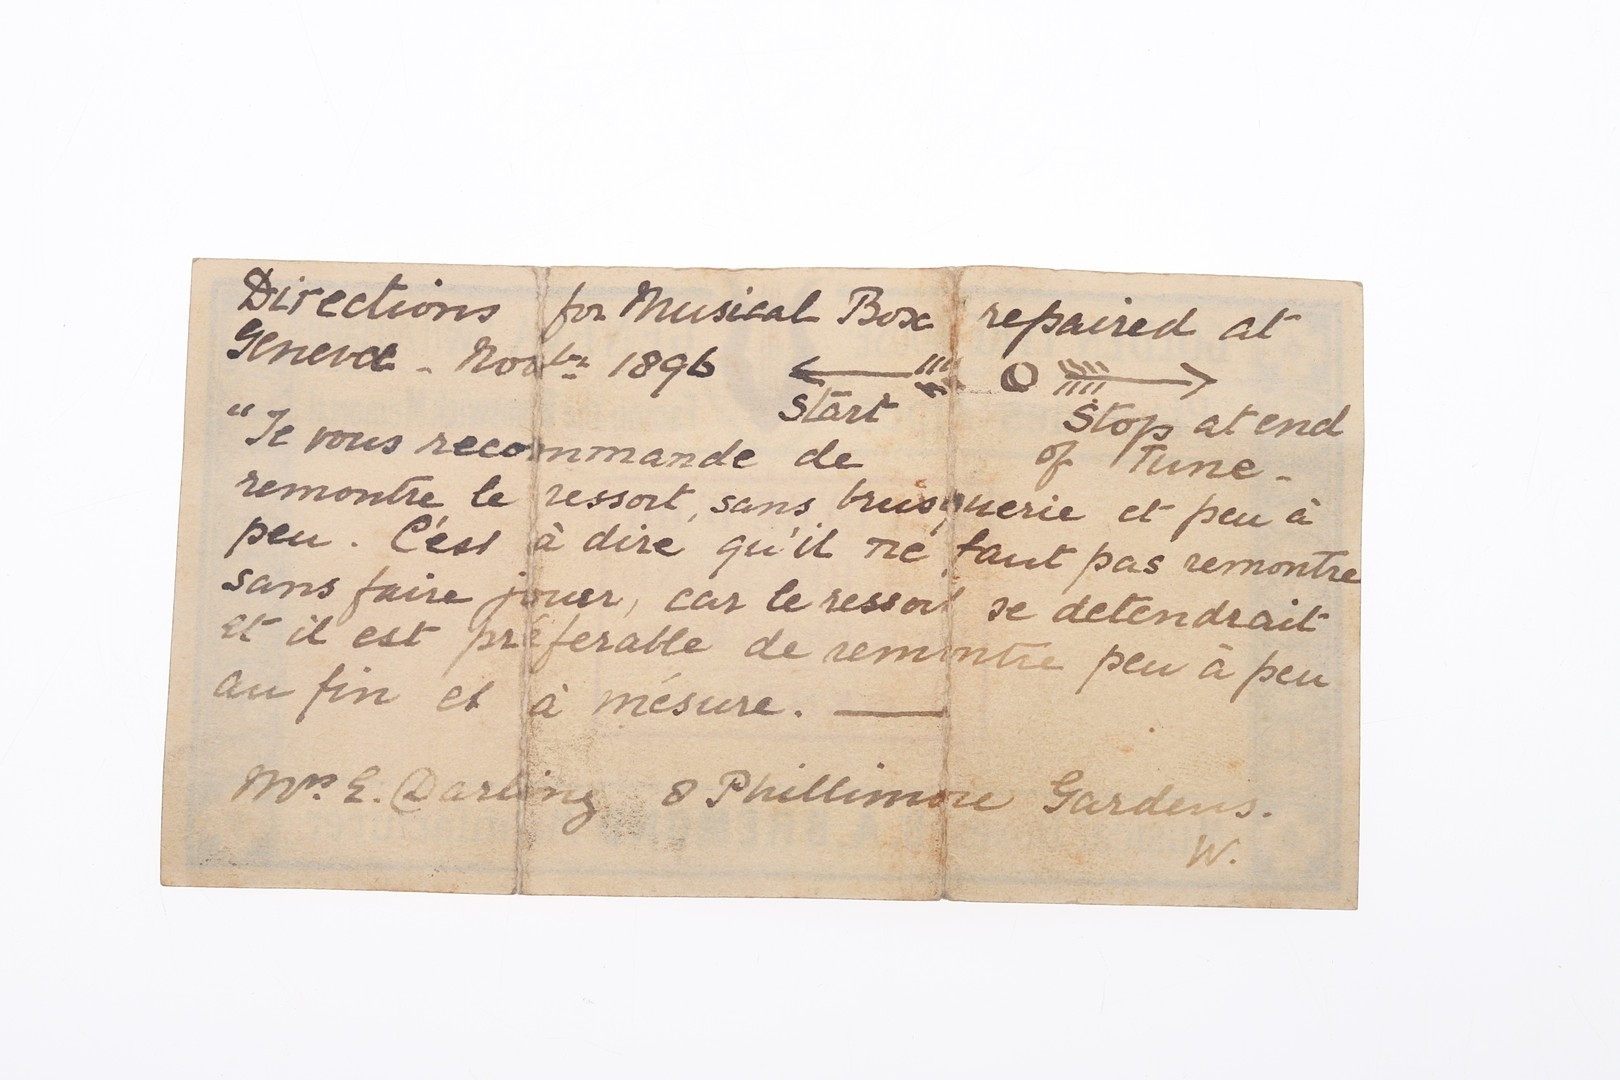 Directions for Musical Box repaired at
Geneva - Novbr 1896
Start
Stop at end
of Tune -
"Je vous recommande de
remontre le ressort, sans brusquerie et peu à
peu. C'est à dire qu'il ne faut pas remontre
sans faire jouer, car le ressort se detendrait
et il est préferable de remontre peu à peu
au fin et à mésure. —
Mrs. E. Darling 8 Phillimore Gardens.
W.